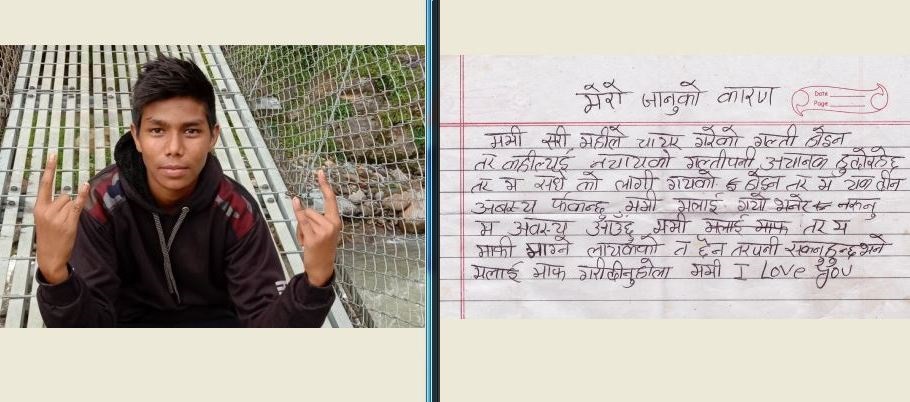 मेरो जानुको कारण
Date
Page
ममी सरी मईले चाएर गरेको गल्ती होईन
तर कहील्यई नचायको गल्तीपनी अचानक हुन
तर म सधै को लागी गयको होईन तर म यक दीन
अबस्य फर्कन्छु ममी मलाई गयो भनेर नरुनु
म अवस्य आउँछु ममी मलाई माफ तर म
माफी माग्ने लायकको त छैन तरपनी सक्नुहुन्छ भने
मलाई माफ गरीदीनुहोला ममी I Love You